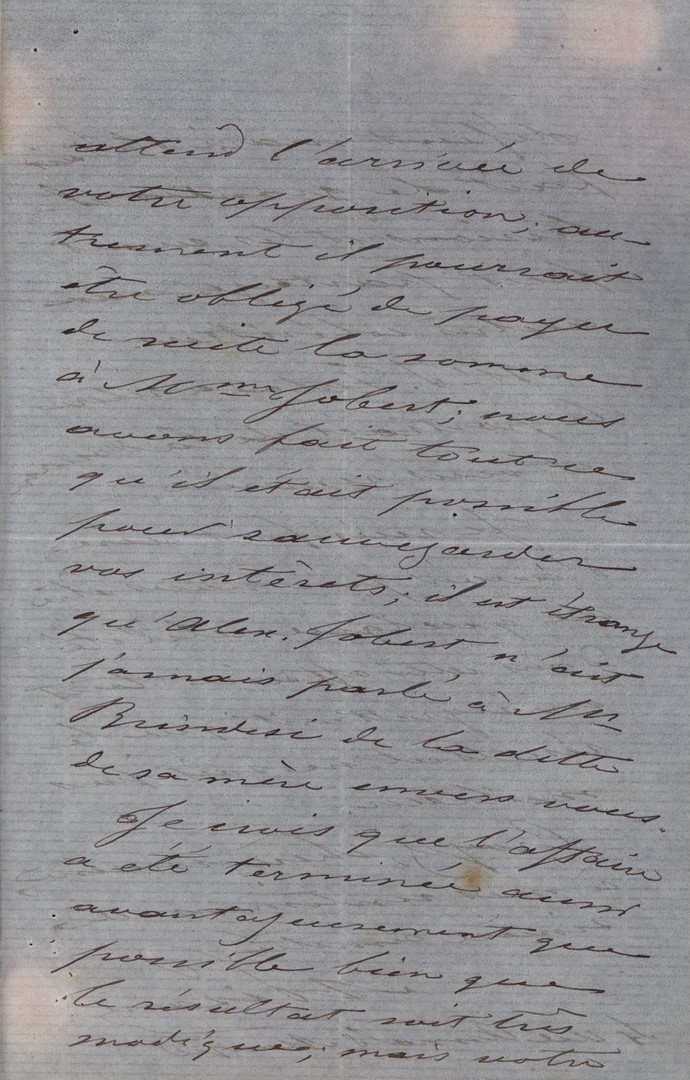 attend l'arrivée de
votre opposition, au-
trement il pourrait
être obligé de payer
de suite la somme
à Mme Jobert; nous
avons fait tout ce
qu'il était possible
pour sauvegarder
vos intérêts; il est étrange
qu'Alex. Jobert n'ait
jamais parlé à Mr
Brindisi de la dette
de sa mère envers vous.
Je crois que l'affaire
a été terminée aussi
avantageusement que
possible bien que
le résultat soit très
modique; mais votre